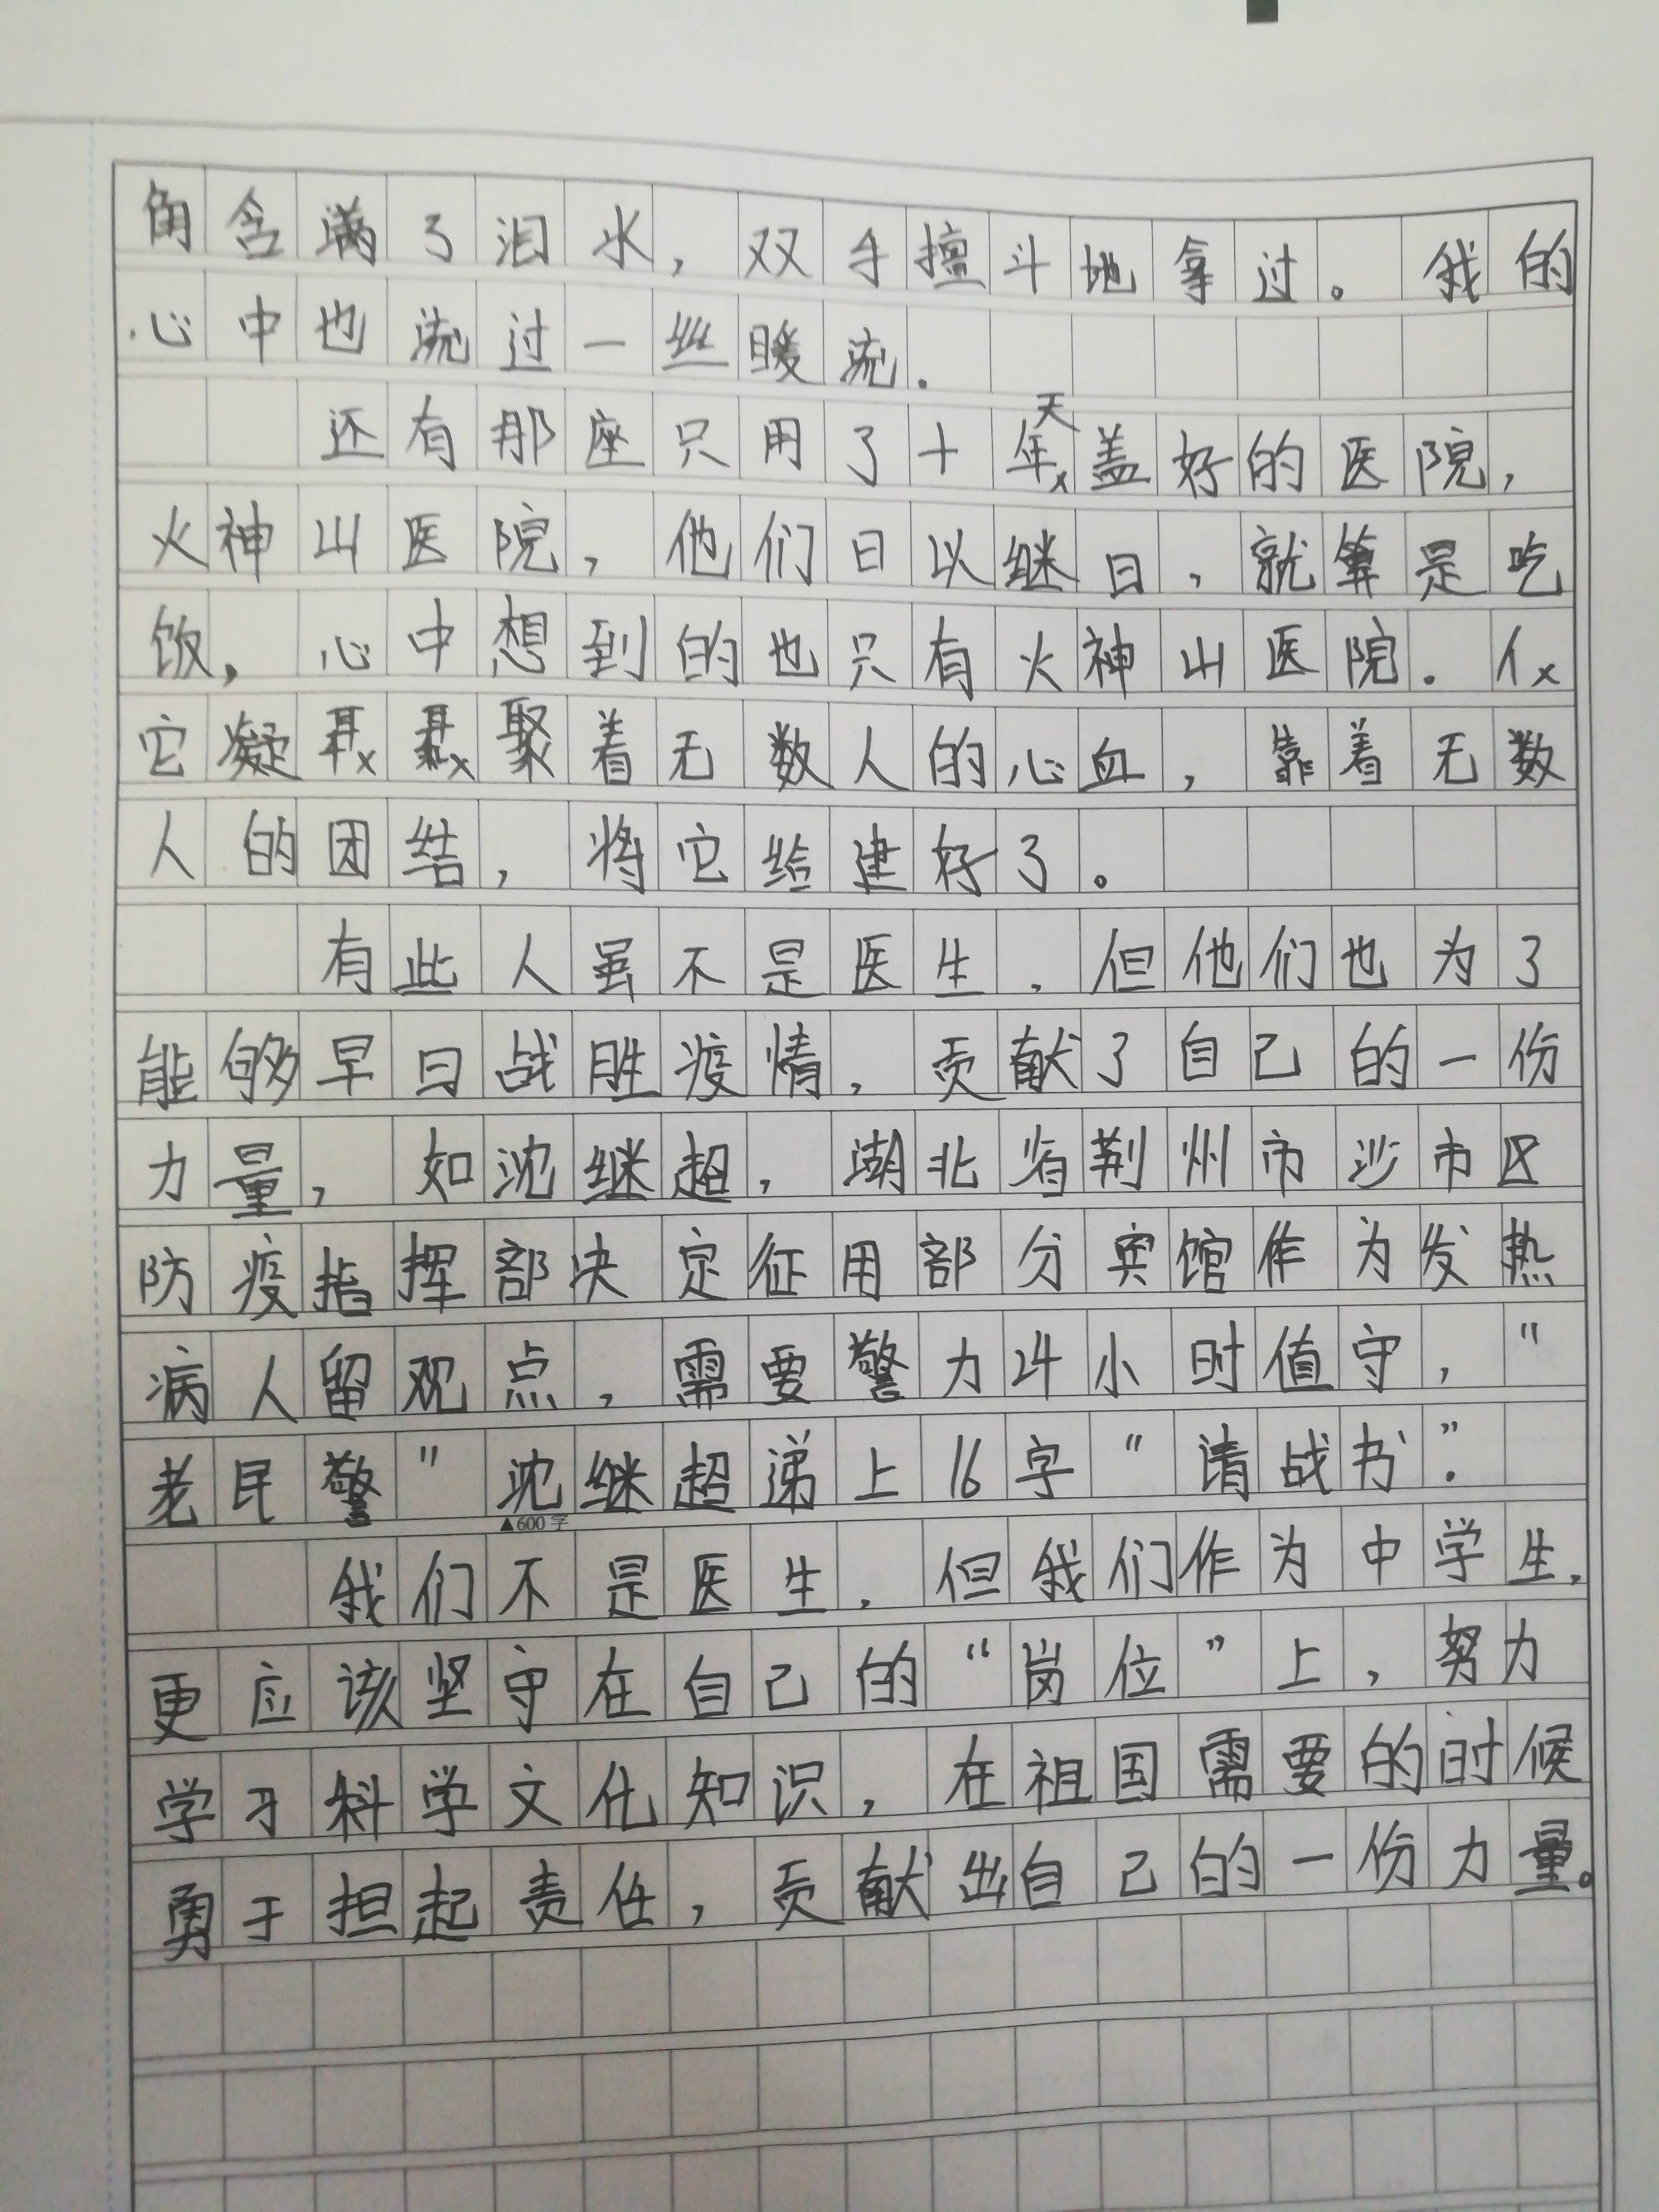 角含满了泪水，双手擅斗地拿过。我的
心中也流过一丝暖流.
还有那座只用了十天盖好的医院，
火神山医院，他们日以继日，就算是吃
饭，心中想到的也只有火神山医院.
它凝聚着无数人的心血，靠着无数
人的团结，将它给建好了。
有此人虽不是医生，但他们也为了
能够早日战胜疫情，贡献了自己的一份
力量，如沈继超，湖北省荆州市沙市区
防疫指挥部决定征用部分宾馆作为发热
病人留观点，需要警力24小时值守，"
老民警"沈继超递上16字"请战书".
▲600字
我们不是医生，但我们作为中学生，
更应该坚守在自己的“岗位”上，努力
学习科学文化知识，在祖国需要的时候
勇于担起责任，贡献出自己的一份力量。